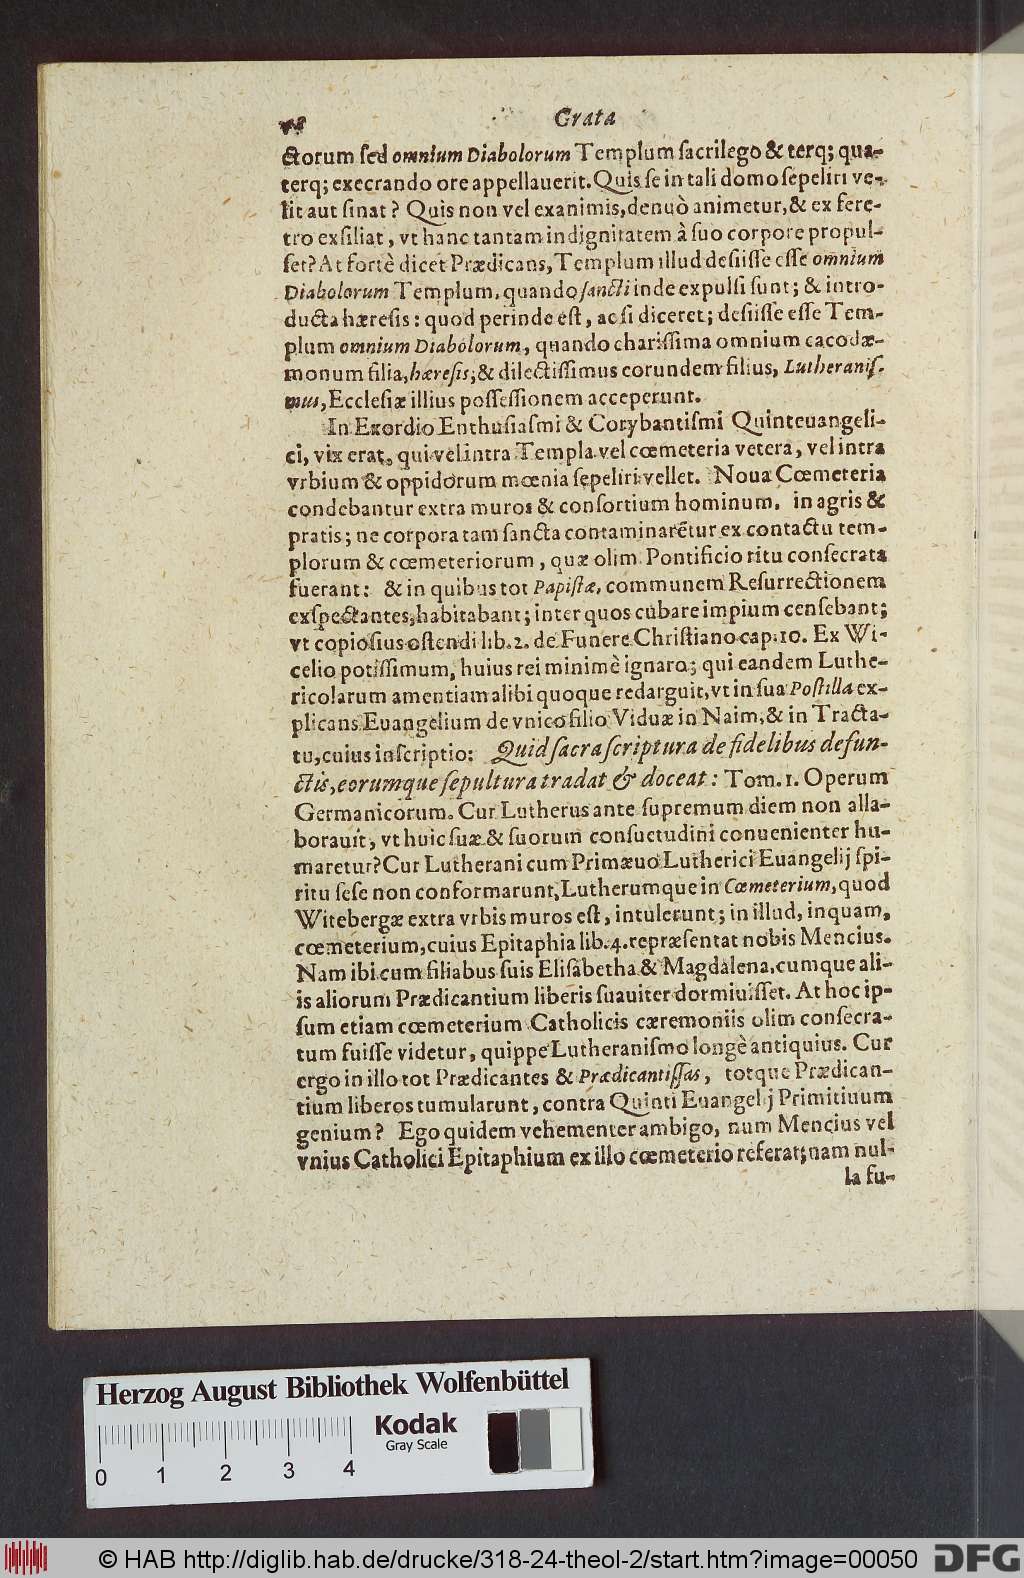 Grata
ctorum sed omnium Diabolorum Templum sacrilego & terq; qua-
terq; execrando ore appellauerit. Quis se in tali domo sepeliri ve-
lit aut sinat? Quis non vel exanimis, denuò animetur, & ex fere-
tro exsiliat, vt hanc tantam indignitatem à suo corpore propul-
set? At fortè dicet Prædicans, Templum illud desiisse esse omnium
Diabolorum Templum, quando sancti inde expulsi sunt; & intro-
ducta hæresis: quod perinde est, ac si diceret; desiisse esse Tem-
plum omnium Diabolorum, quando charissima omnium cacodæ-
monum filia, hæresis; & dilectissimus eorundem filius, Lutheranis-
mus, Ecclesiæ illius possessionem acceperunt.
In Exordio Enthusiasmi & Corybantismi Quinteuangeli-
ci, vix erat, qui vel intra Templa vel cœmeteria vetera, vel intra
vrbium & oppidorum mœnia sepeliri vellet. Noua Cœmeteria
condebantur extra muros & consortium hominum, in agris &
pratis; ne corpora tam sancta contaminarẽtur ex contactu tem-
plorum & cœmeteriorum, quæ olim Pontificio ritu consecrata
fuerant: & in quibus tot Papistæ, communem Resurrectionem
exspectantes, habitabant; inter quos cubare impium censebant;
vt copiosius ostendi lib. 2. de Funere Christiano cap. 10. Ex Wi-
celio potissimum, huius rei minimè ignaro; qui eandem Luthe-
ricolarum amentiam alibi quoque redarguit, vt in sua Postilla ex-
plicans Euangelium de vnico filio Viduæ in Naim, & in Tracta-
tu, cuius inscriptio: Quid sacra scriptura de fidelibus defun-
ctis, eorumque sepultura tradat & doceat: Tom. 1. Operum
Germanicorum. Cur Lutherus ante supremum diem non alla-
borauit, vt huic suæ & suorum consuetudini conuenienter hu-
maretur? Cur Lutherani cum Primæuo Lutherici Euangelij spi-
ritu sese non conformarunt, Lutherumque in Cœmeterium, quod
Witebergæ extra vrbis muros est, intulerunt; in illud, inquam,
cœmeterium, cuius Epitaphia lib. 4. repræsentat nobis Mencius.
Nam ibi cum filiabus suis Elisabetha & Magdalena, cumque ali-
is aliorum Prædicantium liberis suauiter dormiuisset. At hoc ip-
sum etiam cœmeterium Catholicis cæremoniis olim consecra-
tum fuisse videtur, quippe Lutheranismo longè antiquius. Cur
ergo in illo tot Prædicantes & Prædicantissas, totque Prædican-
tium liberos tumularunt, contra Quinti Euangelij Primitiuum
genium? Ego quidem vehementer ambigo, num Mencius vel
vnius Catholici Epitaphium ex illo cœmeterio referat; nam nul-
la fu-
Herzog August Bibliothek Wolfenbüttel
Kodak
Gray Scale
0 1 2 3 4
© HAB http://diglib.hab.de/drucke/318-24-theol-2/start.htm?image=00050
DFG